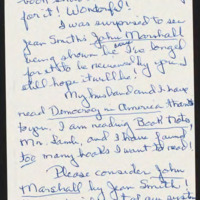 for it! Wonderful!
I was surprised to see
Jean Smith's John Marshall
being shown. I've longed
for it to be reviewed by you
still hope it will be!
My husband and I have
read Democracy in America thanks
to you. I am reading Book Notes,
Mr. Lamb, and I have found
too many books I want to read!
Please consider John
Marshall by Jean Smith!